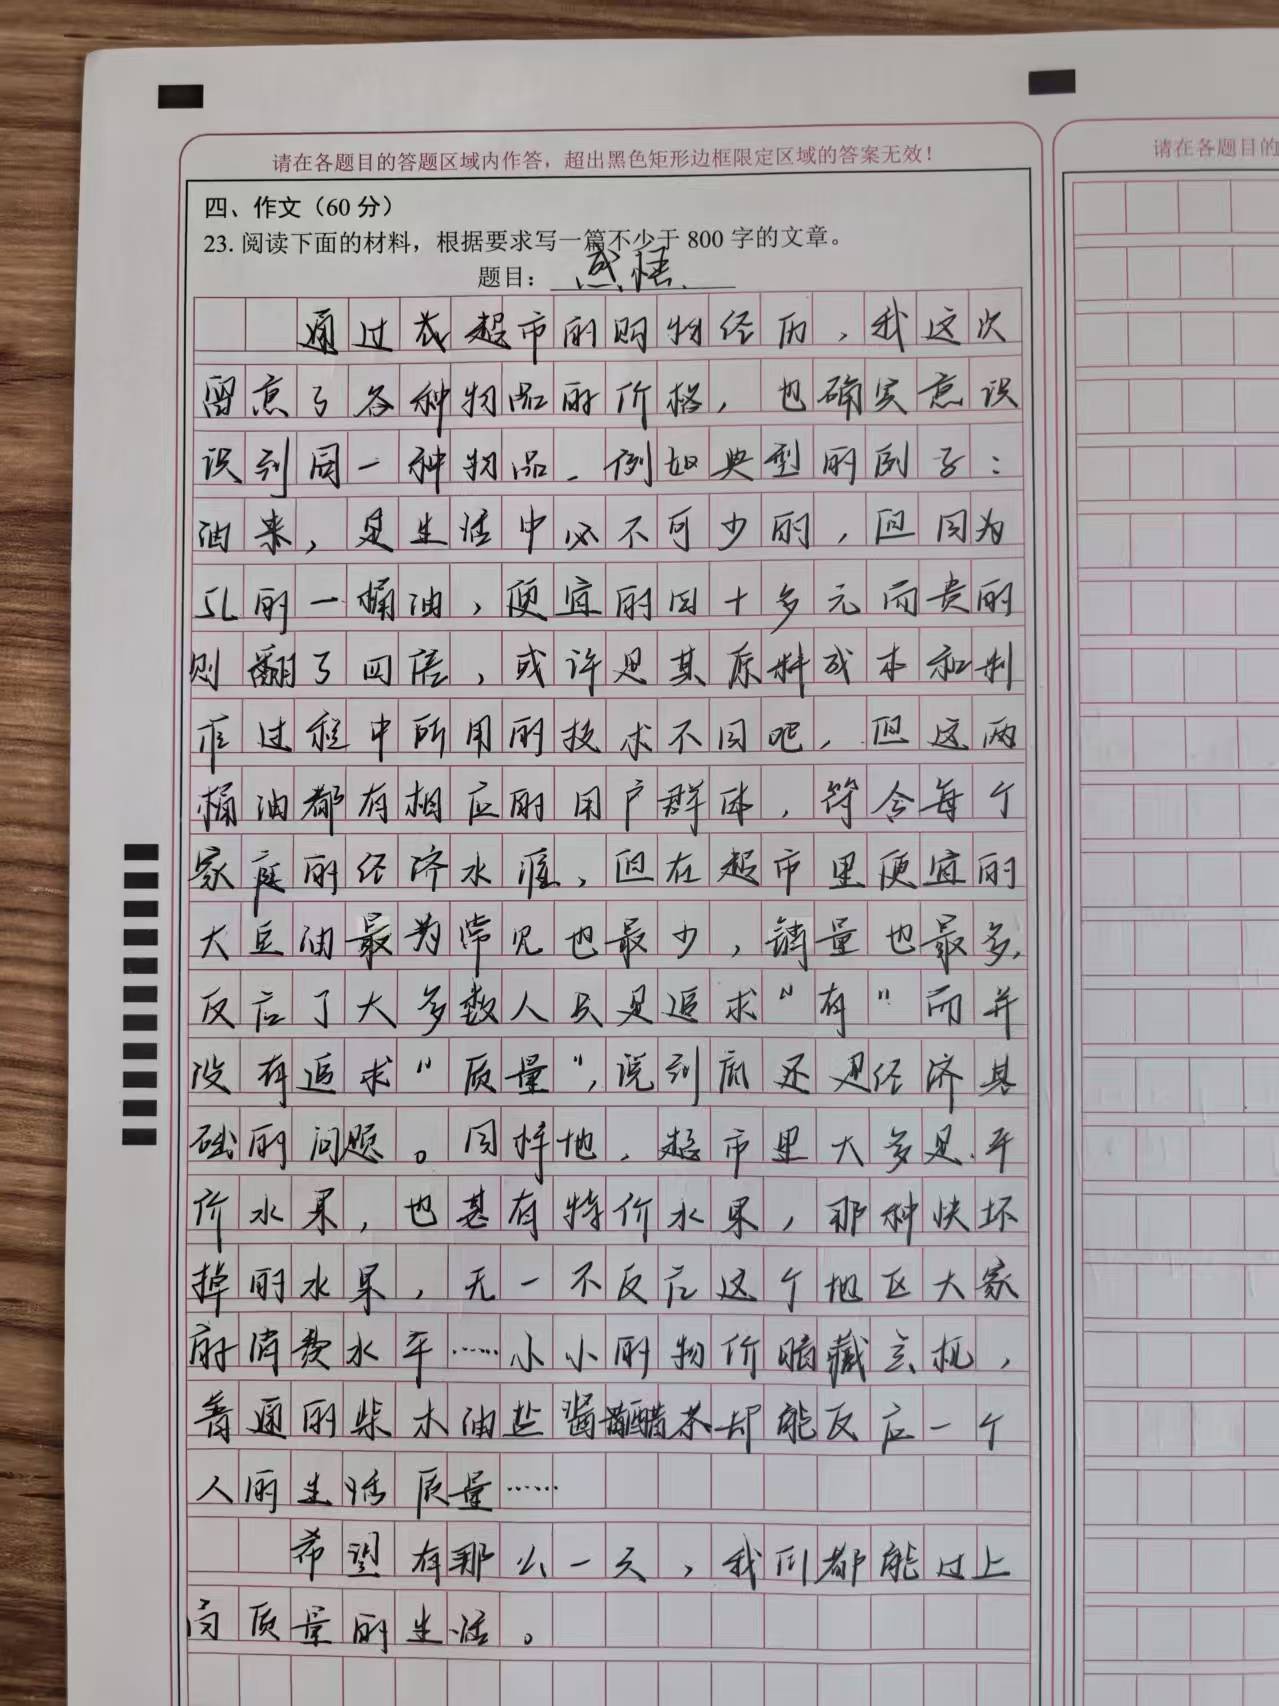 请在各题目的答题区域内作答，超出黑色矩形边框限定区域的答案无效！
请在各题目的
四、作文（60 分）
23. 阅读下面的材料，根据要求写一篇不少于 800 字的文章。
题目：感悟
通过我超市的购物经历，我这次
留意了各种物品的价格，也确实意识
识到同一种物品、例如典型的例子：
油来，是生活中必不可少的，但因为
5L的一桶油，便宜的四十多元而贵的
则翻了四倍，或许是其原料成本和制
作过程中所用的技术不同吧，但这两
桶油都有相应的用户群体，符合每个
家庭的经济水准，但在超市里便宜的
大豆油最为常见也最少，销量也最多，
反应了大多数人只是追求“有”而并
没有追求“质量”，说到底还是经济基
础的问题。同样地，超市里大多是平
价水果，也甚有特价水果，那种快坏
掉的水果，无一不反应这个地区大家
的消费水平……小小的物价暗藏玄机，
普通的柴木油盐酱醋茶却能反应一个
人的生活质量……
希望有那么一天，我们都能过上
高质量的生活。